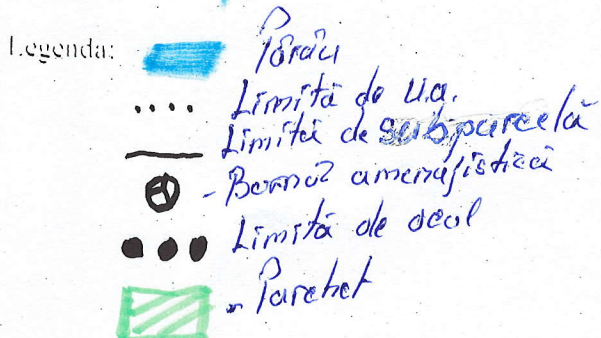 Legenda:
Pârâu
Limită de u.a.
Limită de subparcelă
- Bornă amenajistică
Limită de ocol
- Parchet